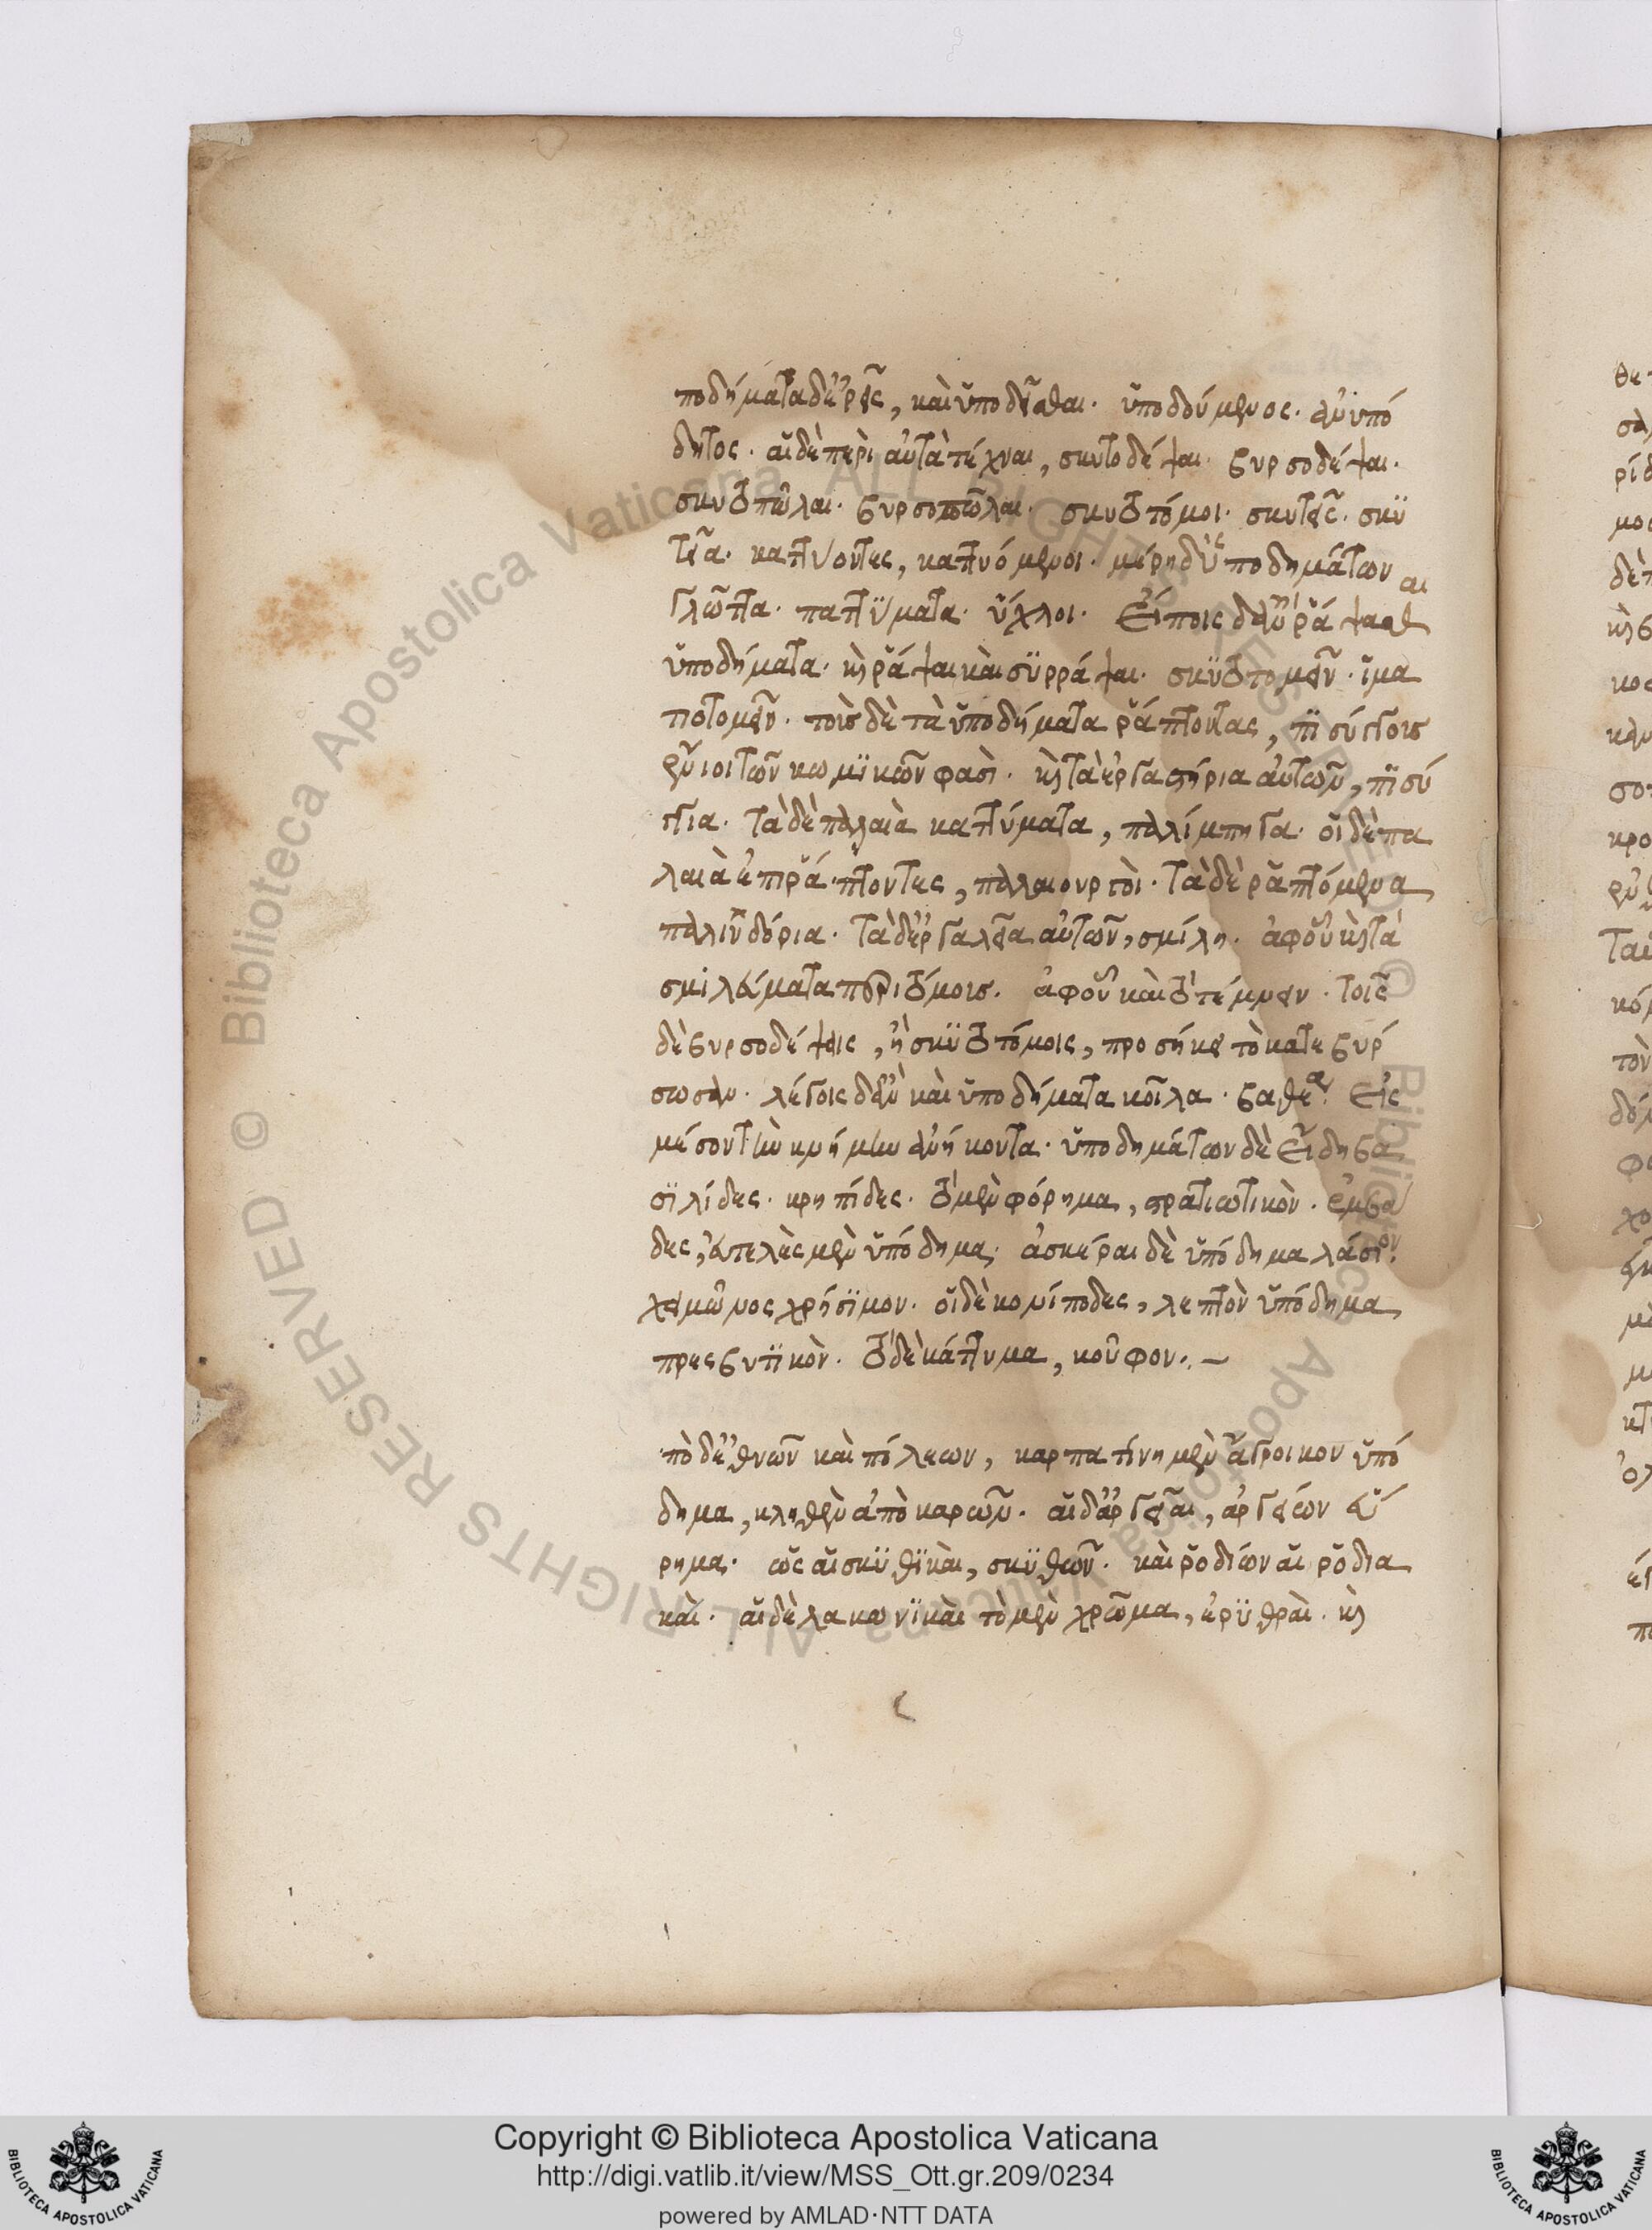 ποδήματα δ' ἐρεῖς, καὶ ὑποδεῖσθαι. ὑποδούμενος. ἀνυπό
δητος. αἱ δὲ περὶ αὐτὰ τέχναι, σκυτοδέψαι. βυρσοδέψαι.
σκυτοπῶλαι. βυρσοπῶλαι. σκυτοτόμοι. σκυτεῖς. σκυ
τεῖα. καττύοντες, καττυόμενοι. μέρη δ' ὑποδημάτων
γλῶττα. καττύματα. ὕχλοι. εἴποις δ' ἂν ῥάψασθαι
ὑποδήματα. καὶ ῥάψαι καὶ συρράψαι. σκυτοτομεῖν. ἱμα
ντοτομεῖν. τοὺς δὲ τὰ ὑποδήματα ῥάπτοντας, πισύγγους
ἔνιοι τῶν κωμικῶν φασὶ. καὶ τὰ ἐργαστήρια αὐτῶν, πισύ
γγια. τὰ δὲ παλαιὰ καττύματα, παλίμπηγα. οἱ δὲ πα
λαιὰ ἐπιρράπτοντες, παλαιουργοὶ. τὰ δὲ ῥαπτόμενα
παλινδόρια. τὰ δ' ἐργαλεῖα αὐτῶν, σμίλη. ἀφ' οὗ καὶ τὰ
σμιλεύματα περιτόμοις. ἀφ' οὗ καὶ τὸ τέμνειν. τοῖς
δὲ βυρσοδέψαις, ἢ σκυτοτόμοις, προσήκει τὸ κατεβύρ
σωσαν. λέγοις δ' ἂν καὶ ὑποδήματα κοῖλα. βαθέα. εἰς
μέσον τὴν κνήμην ἀνήκοντα. ὑποδημάτων δὲ εἴδη βα
σιλίδες. κρηπίδες. τὸ μὲν φόρημα, στρατιωτικὸν. ἐμβά
δες, εὐτελὲς μὲν ὑπόδημα. ἀσκέραι δὲ ὑπόδημα λάσιον
χειμῶνος χρήσιμον. οἱ δὲ κονίποδες, λεπτὸν ὑπόδημα
πρεσβυτικὸν. τὸ δὲ κάττυμα, κοῦφον. –
πὸ δ' ἐθνῶν καὶ πόλεων, καρπατίνη μὲν ἄγροικον ὑπό
δημα, κληθὲν ἀπὸ καρῶν. αἱ δ' ἀργεῖαι, ἀργείων εὕ
ρημα. ὡς αἱ σκυθικαὶ, σκυθῶν. καὶ ῥοδίων αἱ ῥοδια
καὶ. αἱ δὲ λακωνικαὶ τὸ μὲν χρῶμα, ἐρυθραὶ. καὶ
Copyright © Biblioteca Apostolica Vaticana
http://digi.vatlib.it/view/MSS_Ott.gr.209/0234
powered by AMLAD·NTT DATA